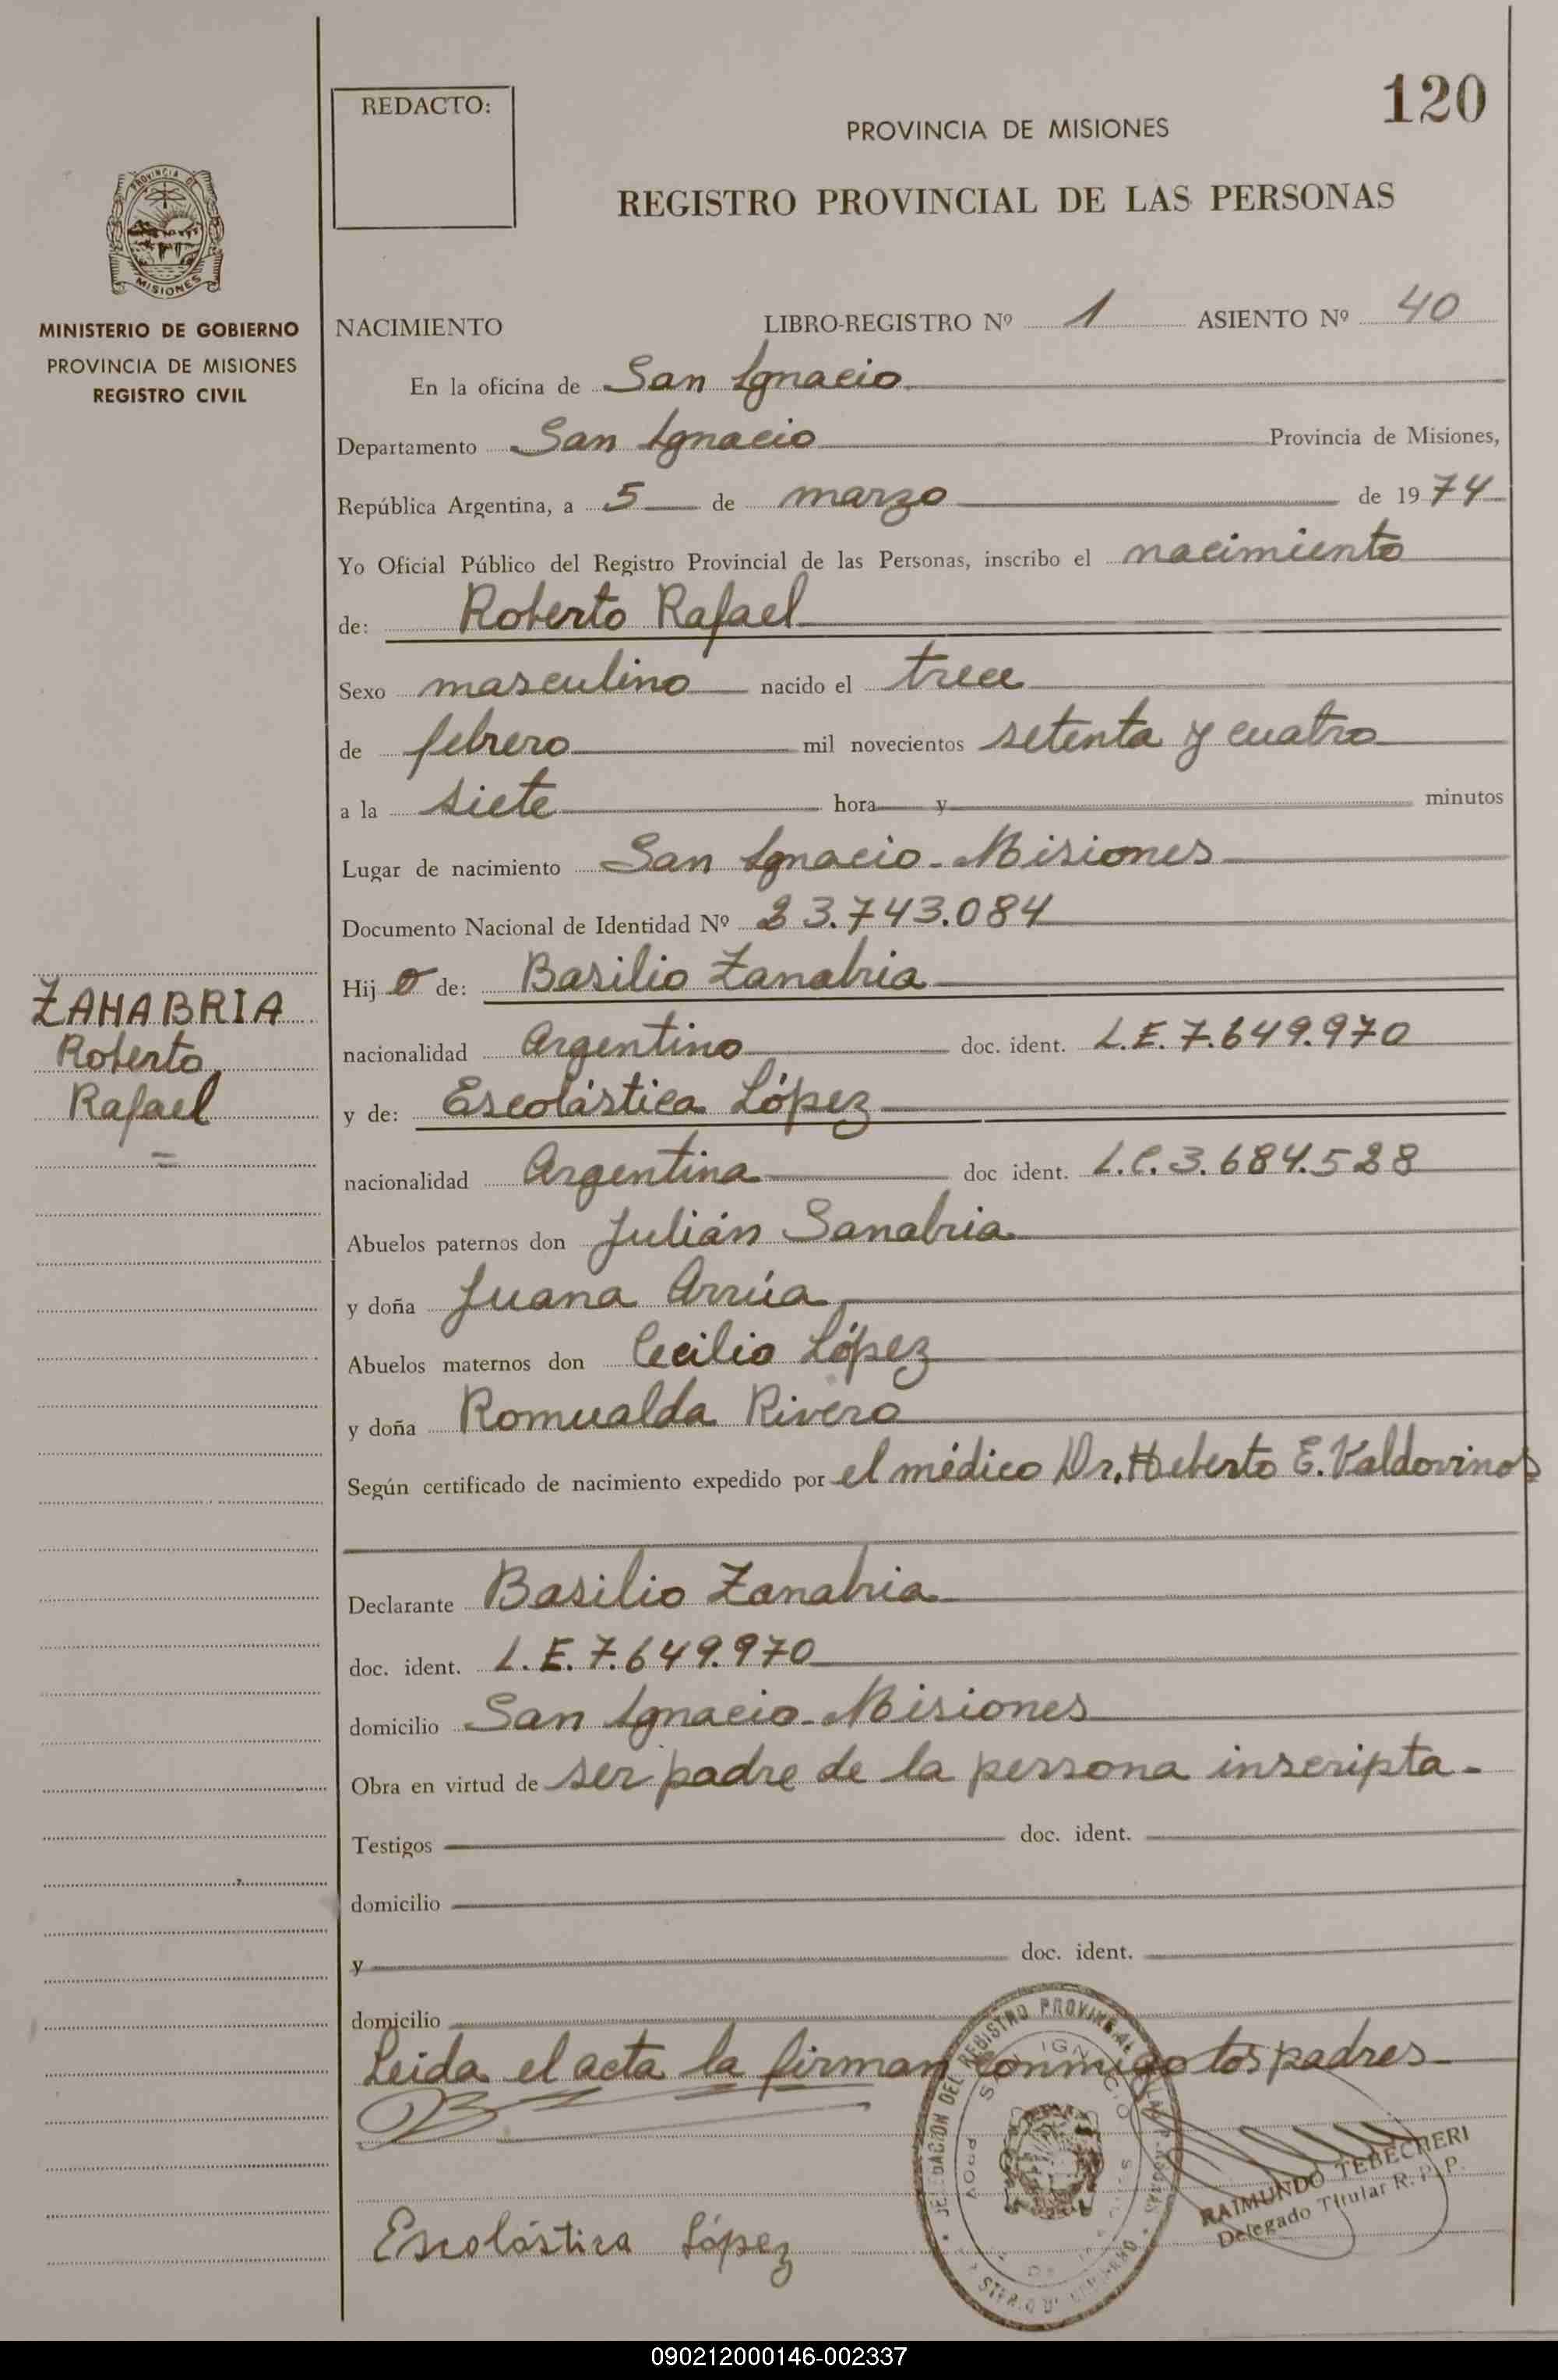 120
REDACTO:
PROVINCIA DE MISIONES
REGISTRO PROVINCIAL DE LAS PERSONAS
PROVINCIA DE
MISIONES
MINISTERIO DE GOBIERNO
PROVINCIA DE MISIONES
REGISTRO CIVIL
NACIMIENTO LIBRO-REGISTRO Nº 1 ASIENTO Nº 40
En la oficina de San Ignacio
Departamento San Ignacio Provincia de Misiones,
República Argentina, a 5 de marzo de 1974
Yo Oficial Público del Registro Provincial de las Personas, inscribo el nacimiento
de: Roberto Rafael
Sexo masculino nacido el trece
de febrero mil novecientos setenta y cuatro
a la siete hora y minutos
Lugar de nacimiento San Ignacio - Misiones
Documento Nacional de Identidad Nº 23.743.084
Hijo de: Basilio Zanabria
ZANABRIA
Roberto
Rafael
nacionalidad Argentino doc. ident. L.E. 7.649.970
y de: Escolástica López
nacionalidad Argentina doc ident. L.C. 3.684.528
Abuelos paternos don Julián Sanabria
y doña Juana Arrúa
Abuelos maternos don Cecilio López
y doña Romualda Rivero
Según certificado de nacimiento expedido por el médico Dr. Heberto E. Valdovinos
Declarante Basilio Zanabria
doc. ident. L.E. 7.649.970
domicilio San Ignacio - Misiones
Obra en virtud de ser padre de la persona inscripta.
Testigos doc. ident.
domicilio
y doc. ident.
domicilio
Leida el acta la firman conmigo los padres
RAIMUNDO TEBECHERI
Delegado Titular R. P. P.
Escolástica López
090212000146-002337